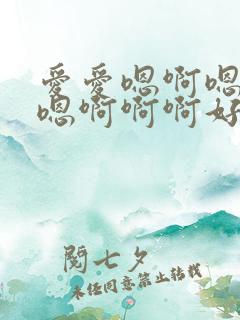 爱爱嗯啊嗯
嗯啊啊啊好
閔七夕
未经同意禁止转载